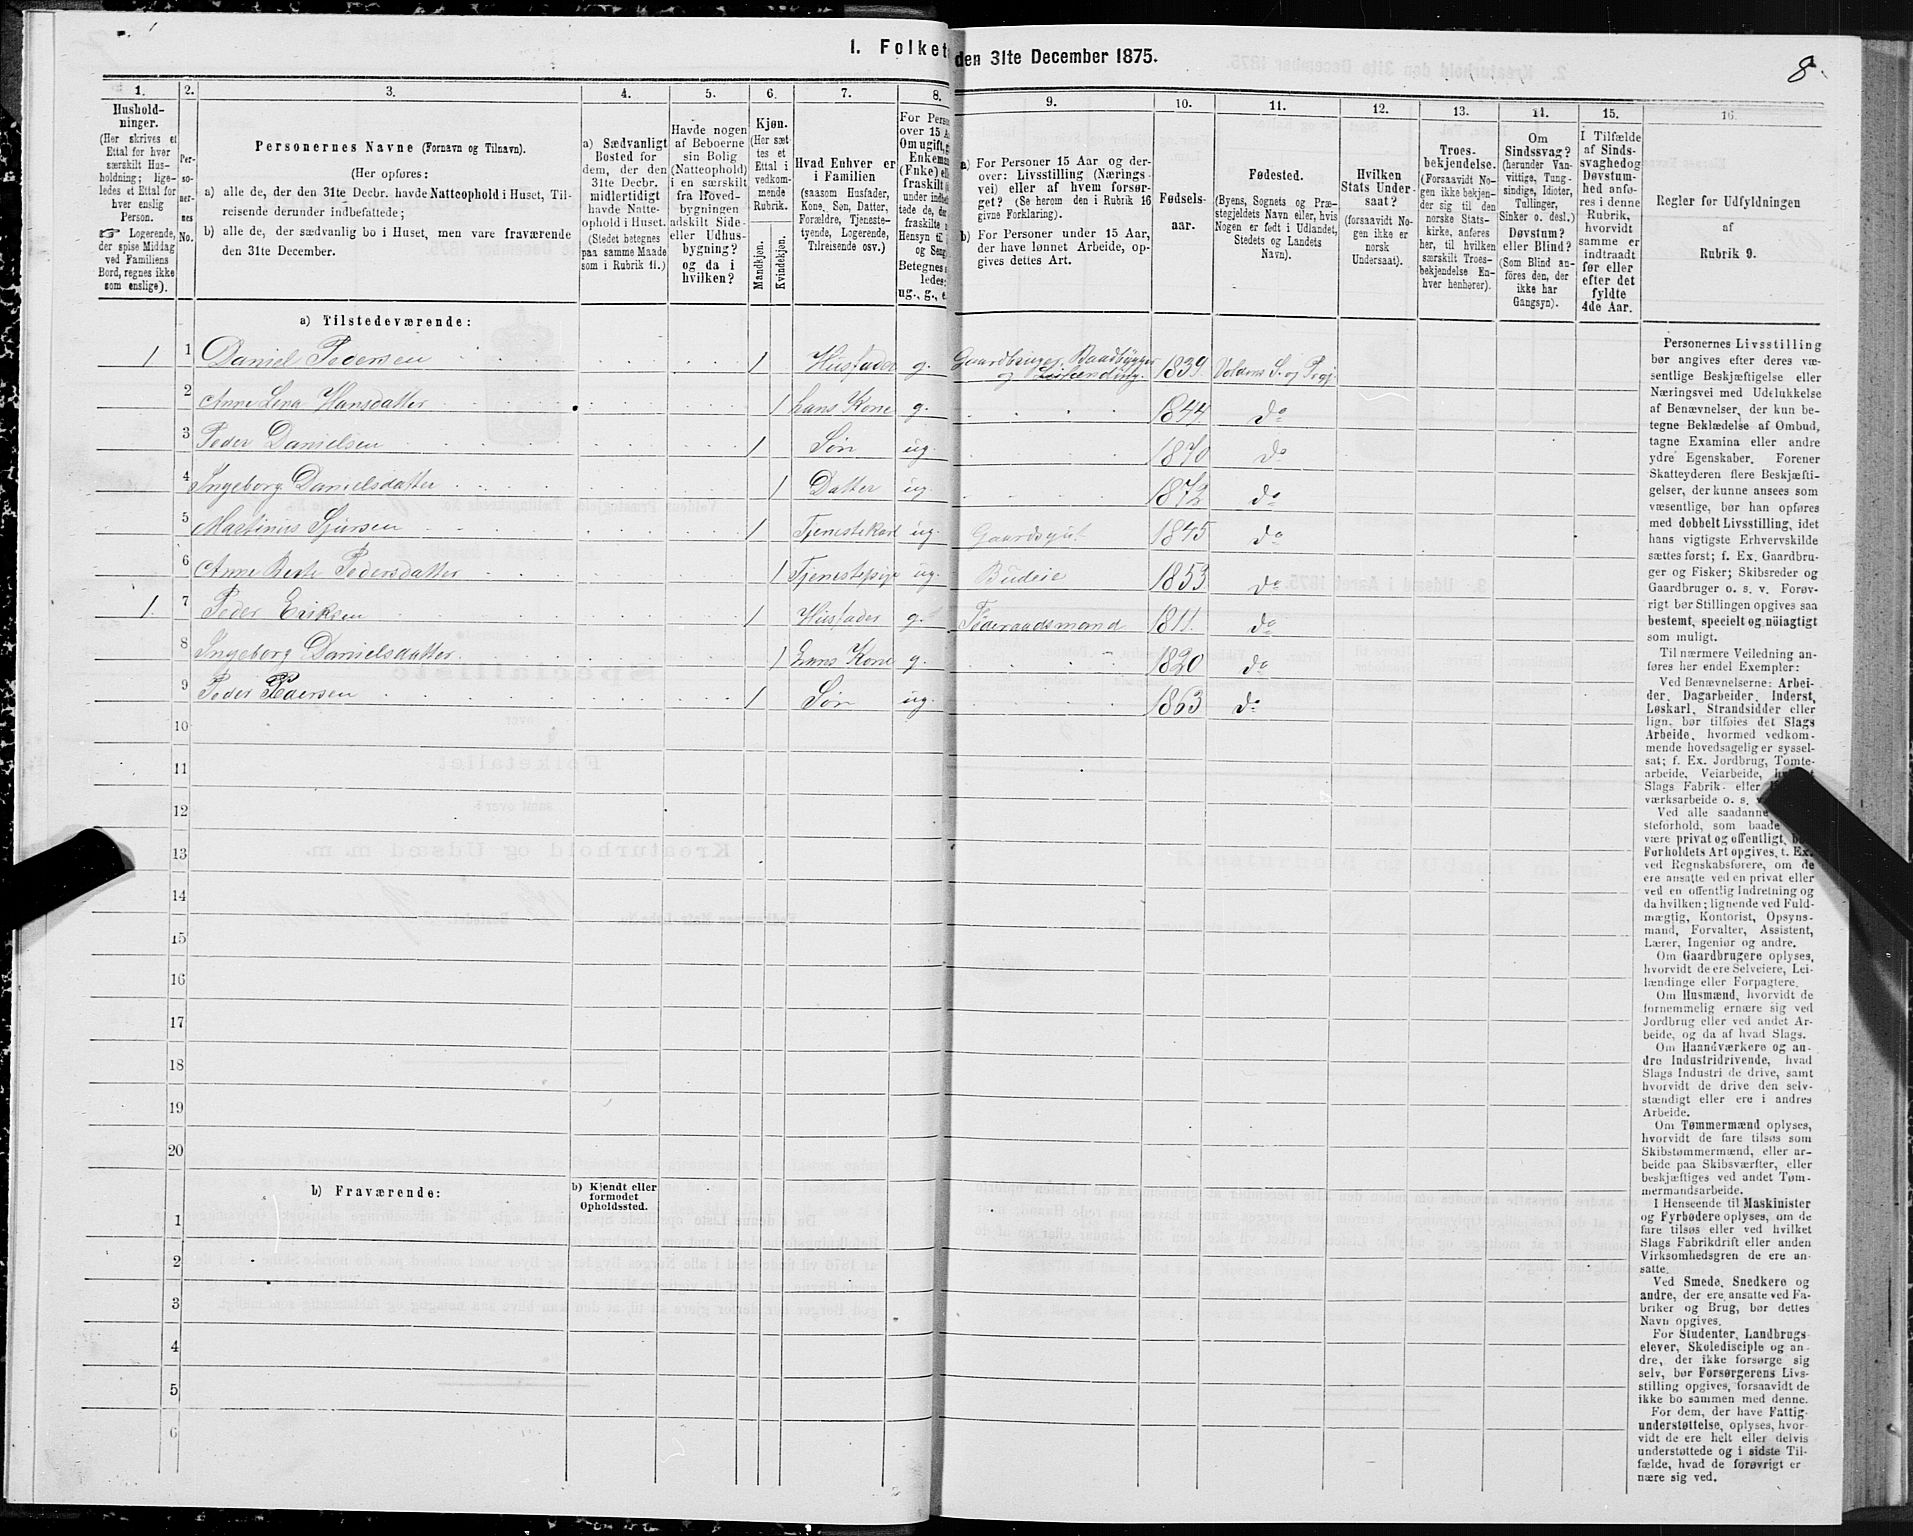 1. Folket
den 31te December 1875.
8.
1.
2.
3.
4.
5.
6.
7.
8.
9.
10.
11.
12.
13.
14.
15.
16.
Hushold-
ninger.
(Her skrives et
Ettal for hver
særskilt Hus-
holdning; lige-
ledes et Ettal for
hver enslig
Person.
☞ Logerende,
der spise Middag
ved Familiens
Bord, regnes ikke
som enslige).
Per-
so-
ner-
nes
No.
Personernes Navne (Fornavn og Tilnavn).
(Her opføres:
a) alle de, der den 31te Decbr. havde Natteophold i Huset, Til-
reisende derunder indbefattede;
b) alle de, der sædvanlig bo i Huset, men vare fraværende
den 31te December.
a) Sædvanligt
Bosted for
dem, der den
31te Decbr.
midlertidigt
havde Natte-
ophold i Huset.
(Stedet betegnes
paa samme Maade
som i Rubrik 11.)
Havde nogen
af Beboerne
sin Bolig
(Natteophold)
i en særskilt
fra Hoved-
bygningen
adskilt Side-
eller Udhus-
bygning?
og da i
hvilken?
Kjøn.
(Her sæt-
tes et
Ettal i
vedkom-
mende
Rubrik.
Mandkjøn.
Kvindekjøn.
Hvad Enhver er
i Familien
(saasom Husfader,
Kone, Søn, Datter,
Forældre, Tjeneste-
tyende, Logerende,
Tilreisende osv.)
For Perso
over 15 A
Om ugift, g
Enkeman
(Enke) ell
fraskilt
a) For Personer 15 Aar og der-
over: Livsstilling (Nærings-
vei) eller af hvem forsør-
get? (Se herom den i Rubrik 16
givne Forklaring).
b) For Personer under 15 Aar,
der have lønnet Arbeide, op-
gives dettes Art.
Fødsels-
aar.
Fødested.
(Byens, Sognets og Præ-
stegjeldets Navn eller, hvis
Nogen er født i Udlandet,
Stedets og Landets
Navn).
Hvilken
Stats Under-
saat?
(forsaavidt No-
gen ikke er
norsk
Undersaat).
Troes-
bekjendelse.
(Forsaavidt No-
gen ikke bekjen-
der sig til den
norske Stats-
kirke, anføres
her, til hvilken
særskilt Troes-
bekjendelse En-
hver henhører).
Om
Sindssvag?
(herunder Van-
vittige, Tung-
sindige, Idioter,
Tullinger,
Sinker o. desl.)
Døvstum?
eller Blind?
(Som Blind an-
føres den, der
ikke har
Gangsyn).
I Tilfælde
af Sinds-
svaghed og
Døvstum-
hed anfø-
res i denne
Rubrik,
hvorvidt
samme er
indtraadt
før eller
efter det
fyldte
4de Aar.
Regler for Udfyldningen
af
Rubrik 9.
a) Tilstedeværende:
1 1 Daniel Pedersen 1 Husfader g. Gaardbruger, Baadbygger 1839 Voldens S. og Pgj.
og Leilending
2 Anne Lena Hansdatter 1 hans Kone g. 1844 do
3 Peder Danielsen 1 Søn ug. 1870 do
4 Ingeborg Danielsdatter 1 Datter ug. 1872 do
5 Martinus Sjursen 1 Tjenestekarl ug. Gaardsgut 1845 do
6 Anne Berte Pedersdatter 1 Tjenestepige ug. Budeie 1853 do
1. 7 Peder Eriksen 1 Husfader g. Føderaadsmand 1811 do
8 Ingeborg Danielsdatter 1 hans Kone g. 1820 do
9 Peder Pedersen 1 Søn ug. 1863 do
10
11
12
13
14
15
16
17
18
19
20
b) Fraværende:
b) Kjendt eller
formodet
Opholdssted.
1
2
3
4
5
6
Personernes Livsstilling
bør angives efter deres væ-
sentlige Beskjæftigelse eller
Næringsvei med Udelukkelse
af Benævnelser, der kun be-
tegne Beklædelse af Ombud,
tagne Examina eller andre
ydre Egenskaber. Forener
Skatteyderen flere Beskjæfti-
gelser, der kunne ansees som
væsentlige, bør han opføres
med dobbelt Livsstilling, idet
hans vigtigste Erhvervskilde
sættes først; f. Ex. Gaardbru-
ger og Fisker; Skibsreder og
Gaardbruger o. s. v. Forøv-
rigt bør Stillingen opgives saa
bestemt, specielt og nöiagtigt
som muligt.
Til nærmere Veiledning an-
føres her endel Exempler:
Ved Benævnelserne: Arbei-
der, Dagarbeider, Inderst,
Løskarl, Strandsidder eller
lign. bør tilføies det Slags
Arbeide, hvormed vedkom-
mende hovedsagelig er syssel-
sat; f. Ex. Jordbrug, Tomte-
arbeide, Veiarbeide,
Slags Fabrik- eller
værksarbeide o. s. v.
Ved alle saadanne
steforhold, som baade
være privat og offentligt,
Forholdets Art opgives, t. Ex.
ved Regnskabsførere, om de
ere ansatte ved en privat eller
ved en offentlig Indretning og
da hvilken; lignende ved Fuld-
mægtig, Kontorist, Opsyns-
mand, Forvalter, Assistent,
Lærer, Ingeniør og andre.
Om Gaardbrugere oplyses,
hvorvidt de ere Selveiere, Lei-
lændinge eller Forpagtere.
Om Husmænd, hvorvidt de
fornemmelig ernære sig ved
Jordbrug eller ved andet Ar-
beide, og da af hvad Slags.
Om Haandværkere og an-
dre Industridrivende, hvad
Slags Industri de drive, samt
hvorvidt de drive den selv-
stændigt eller ere i andres
Arbeide.
Om Tømmermænd oplyses,
hvorvidt de fare tilsøs som
Skibstømmermænd, eller ar-
beide paa Skibsværfter, eller
beskjæftiges ved andet Tøm-
mermandsarbeide.
I Henseende til Maskinister
og Fyrbødere oplyses, om de
fare tilsøs eller ved hvilket
Slags Fabrikdrift eller anden
Virksomhedsgren de ere an-
satte.
Ved Smede, Snedkere og
andre, der ere ansatte ved Fa-
briker og Brug, bør dettes
Navn opgives.
For Studenter, Landbrugs-
elever, Skoledisciple og an-
dre, der ikke forsørge sig
selv, bør Forsørgerens Livs-
stilling opgives, forsaavidt de
ikke bo sammen med denne.
For dem, der have Fattig-
understøttelse, oplyses, hvor-
vidt de ere helt eller delvis
understøttede og i sidste Til-
fælde, hvad de forøvrigt er-
nære sig ved.